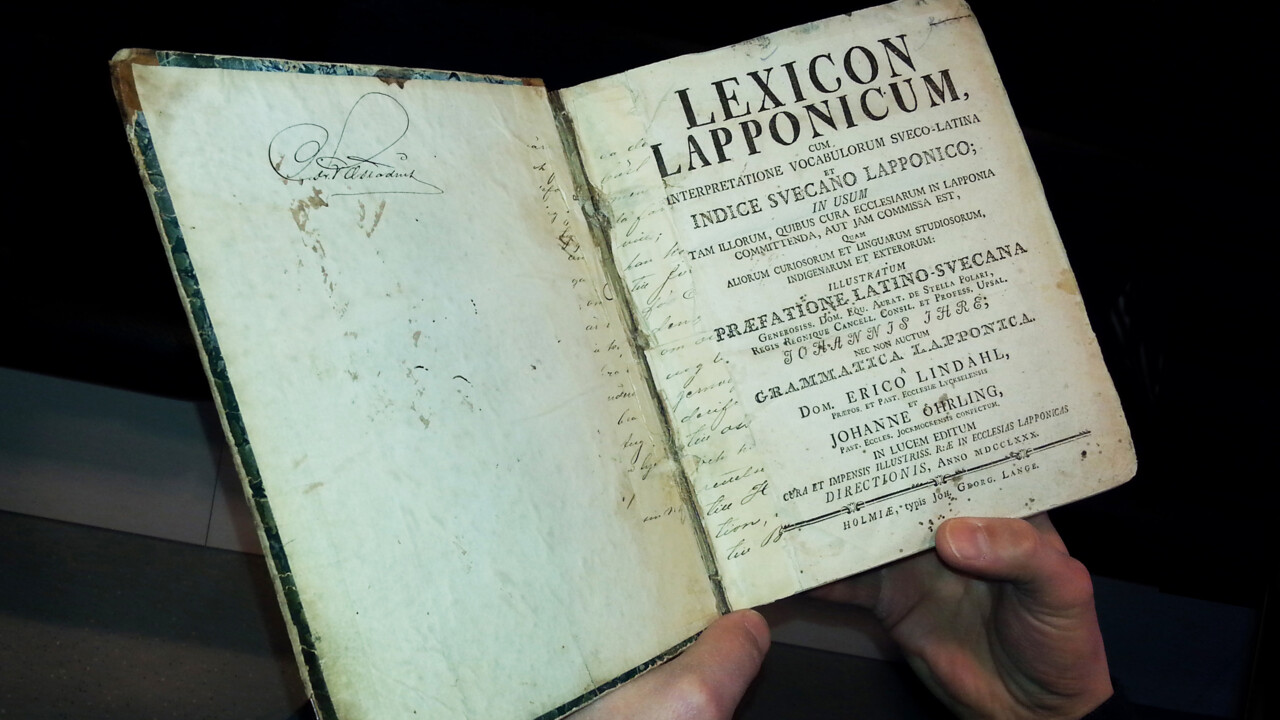 LEXICON
LAPPONICUM,
CUM
INTERPRETATIONE VOCABULORUM SVECO-LATINA
ET
INDICE SVECANO LAPPONICO;
IN USUM
TAM ILLORUM, QUIBUS CURA ECCLESIARUM IN LAPPONIA
COMMITTENDA, AUT JAM COMMISSA EST,
QUAM
ALIORUM CURIOSORUM ET LINGUARUM STUDIOSORUM,
INDIGENARUM ET EXTERORUM:
ILLUSTRATUM
PRÆFATIONE LATINO-SVECANA
GENEROSISS. DOM. EQU. AURAT. DE STELLA POLARI,
REGIS REGNIQUE CANCELL. CONSIL. ET PROFESS. UPSAL.
JOHANNIS IHRE;
NEC NON AUCTUM
GRAMMATICA LAPPONICA.
A
DOM. ERICO LINDAHL,
PRÆPOS. ET PAST. ECCLESIÆ LYCKSELENSIS
ET
JOHANNE ÖHRLING,
PAST. ECCLES. JOCKMOCKENSIS CONFECTUM,
IN LUCEM EDITUM
CURA ET IMPENSIS ILLUSTRISS. R:Æ IN ECCLESIAS LAPPONICAS
DIRECTIONIS, ANNO MDCCLXXX.
HOLMIÆ, typis JOH. GEORG. LANGE.